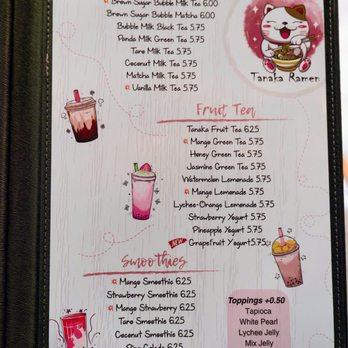 Brown Sugar Bubble Milk Tea 6.00
Brown Sugar Bubble Matcha 6.00
Bubble Milk Black Tea 5.75
Panda Milk Green Tea 5.75
Taro Milk Tea 5.75
Coconut Milk Tea 5.75
Matcha Milk Tea 5.75
Vanilla Milk Tea 5.75
Tanaka Ramen
Fruit Tea
Tanaka Fruit Tea 6.25
Mango Green Tea 5.75
Honey Green Tea 5.75
Jasmine Green Tea 5.75
Watermelon Lemonade 5.75
Mango Lemonade 5.75
Lychee-Orange Lemonade 5.75
Strawberry Yogurt 5.75
Pineapple Yogurt 5.75
NEW Grapefruit Yogurt 5.75
Smoothies
Mango Smoothie 6.25
Strawberry Smoothie 6.25
Mango Strawberry 6.25
Taro Smoothie 6.25
Coconut Smoothie 6.25
Toppings +0.50
Tapioca
White Pearl
Lychee Jelly
Mix Jelly